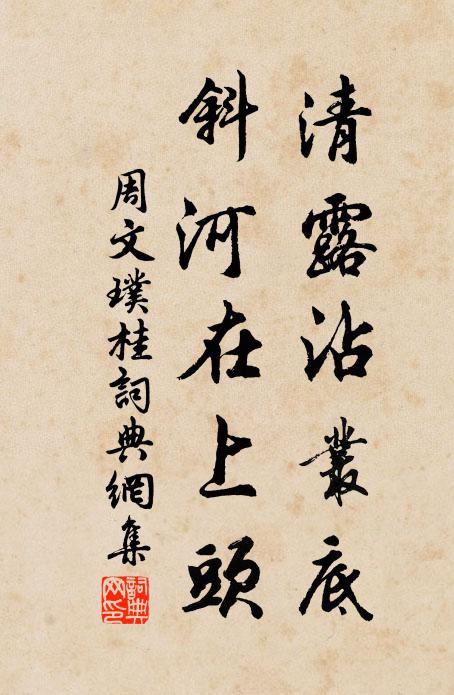 清露沾叢底
斜河在上頭
周文璞桂詞典網集
詞典网印